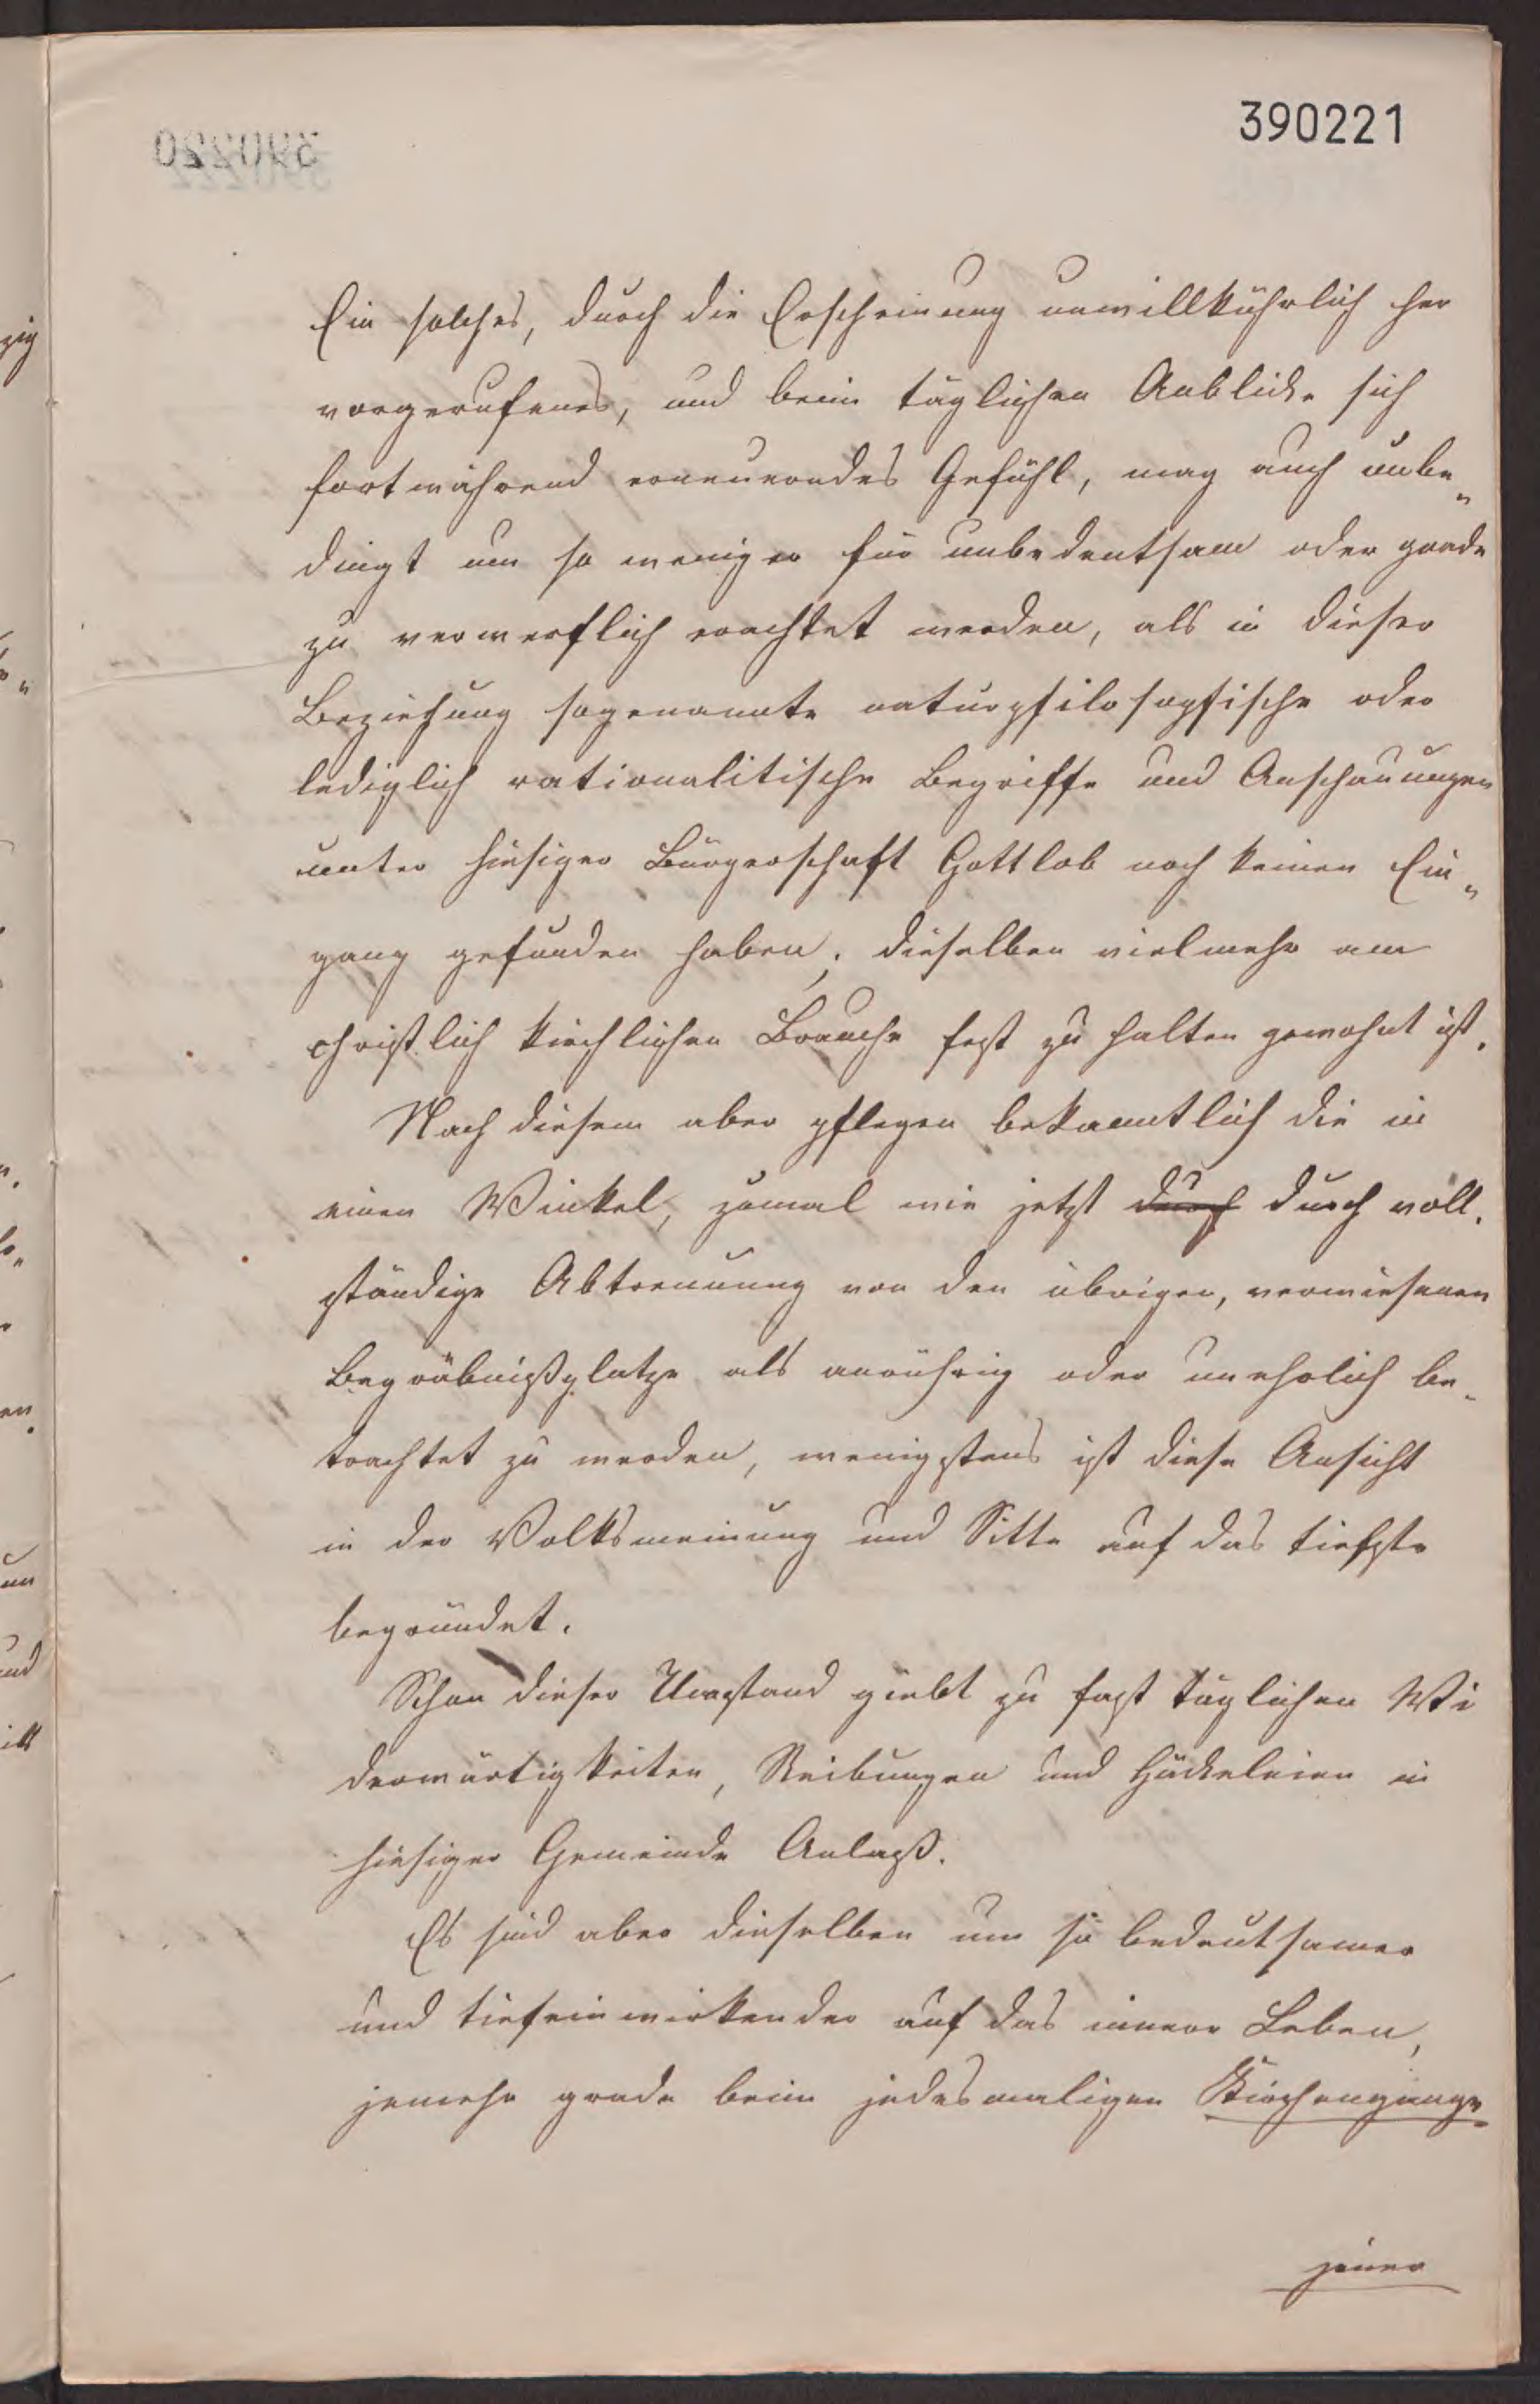 390221
Ein solches, durch die Erscheinung unwillkührlich her
vorgerufenes, und beim täglichen Anblicke sich
fortwährend erneuerndes Gefühl, mag auch unbe„
dingt um so weniger für unbedeutsam oder grade
zu verwerflich erachtet werden, als in dieser
Beziehung sogenannte naturphilosophische oder
lediglich rationalitische Begriffe und Anschauungen
unter hiesiger Bürgerschaft Gottlob noch keinen Ein„
gang gefunden haben; dieselben vielmehr am
christlich kirchlichen Brauche fest zu halten gewohnt ist.
Nach diesem aber pflegen bekanntlich die in
einen Winkel, zumal wie jetzt durch durch voll.
ständige Abtrennung von den übrigen, verwiesenen
Begräbnißplatze als anrührig oder unehrlich be„
trachtet zu werden, wenigstens ist diese Ansicht
in der Volksmeinung und Sitte auf das tiefste
begründet.
Schon dieser Umstand giebt zu fast täglichen Wi
derwärtigkeiten, Reibungen und Häckeleien in
hiesiger Gemeinde Anlaß.
Es sind aber dieselben um so bedeutsamer
und tiefeinwirkender auf das innere Leben,
jemehr grade beim jedesmaligen Kirchengange
jener